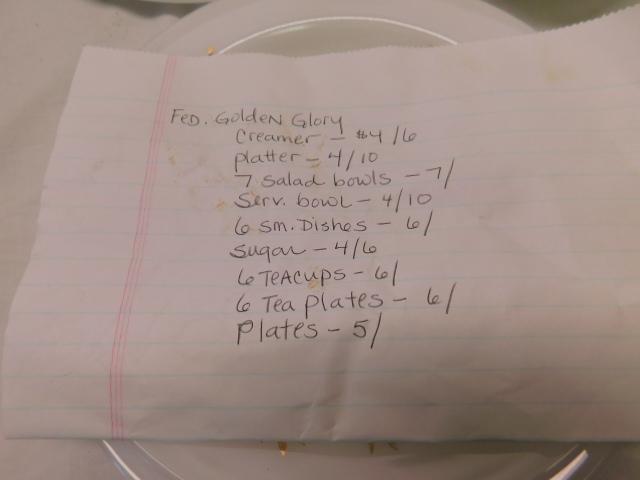 FED. GOLDEN GLORY
Creamer - $4/6
platter - 4/10
7 salad bowls - 7/
Serv. bowl - 4/10
6 sm. Dishes - 6/
Sugar - 4/6
6 TEACUPS - 6/
6 Tea plates - 6/
Plates - 5/